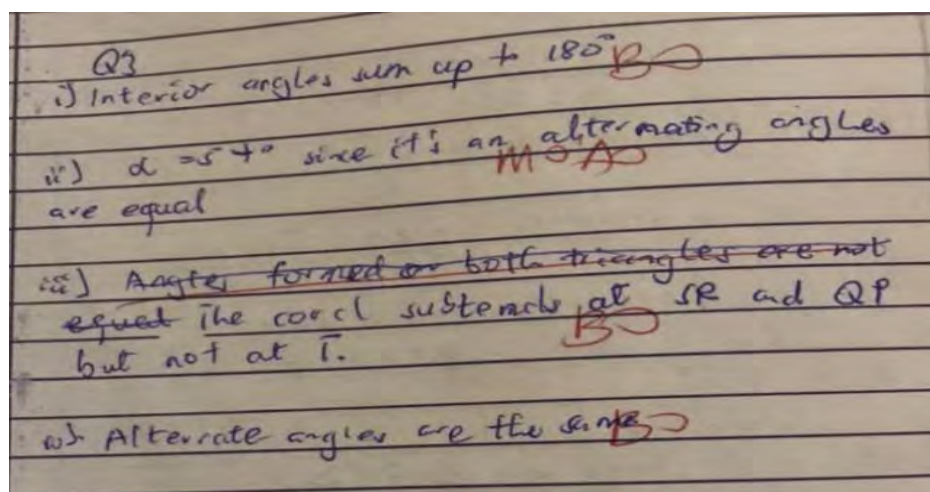 Q3
i) Interior angles sum up to 180° B0
ii) α = 57° since it's an alternating angles
M0 A0
are equal
iii) Angles formed or both triangles are not
equal The cord subtends at SR and QP
B0
but not at T.
iv) Alternate angles are the same B0